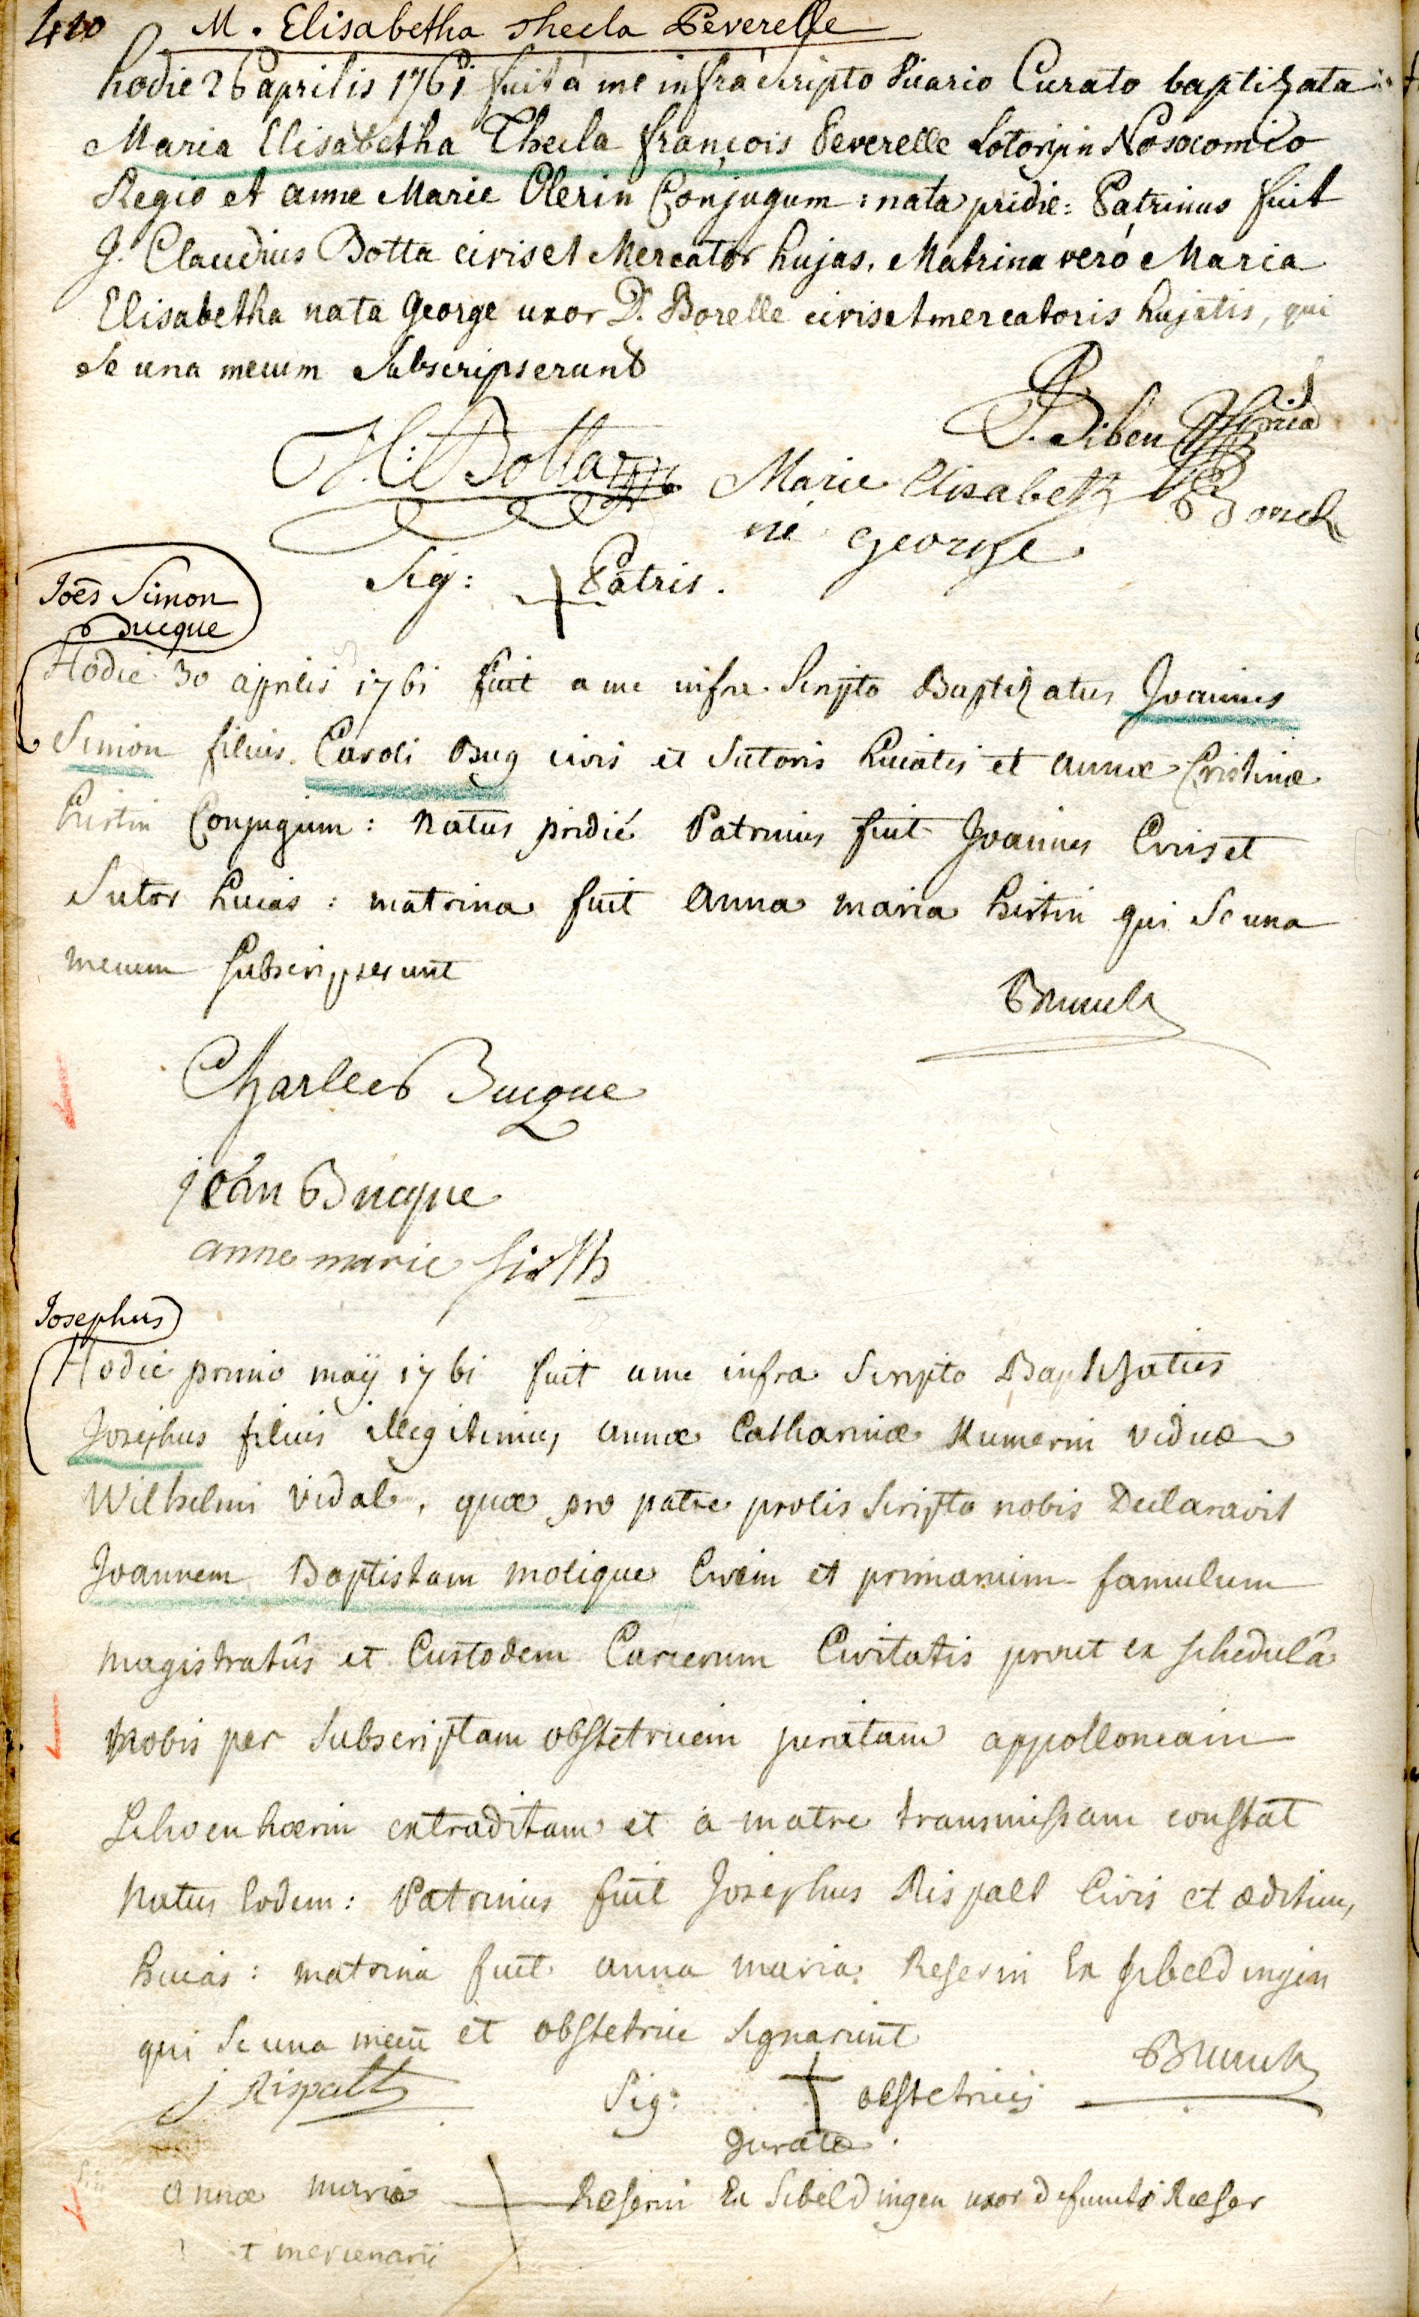 410 M. Elisabetha Thecla Peverelle
hodie 26 aprilis 1761 fuit á me infrá scripto Vicario Curato baptizata
Maria Elisabetha Thecla françois Peverelle Lotorijin Nosocomio
Regio et anne Marie Olerin Conjugum : nata pridie : Patrinus fuit
J. Claudius Botta civis et Mercator hujas, Matrina veró Maria
Elisabetha nata George uxor D. Borelle civis et mercatoris hujatis, qui
se una mecum Subscripserunt
Botta
Marie Elisabeth
né george
Sig: + Patris.
Joēs Simon
Bucque
Hodie 30 aprilis 1761 fuit a me infra Scripto Baptizatus Joannes
Simon filius Caroli Bug civis et Sutoris huiatis et annæ Cristinæ
hirtin Conjugum : natus pridié Patrinus fuit Joannes Civis et
Sutor huias : matrina fuit anna maria hirtin qui Se una
mecum Subscripserunt
Brunck
Charles Bucque
jean Bucque
anne marie hirth
Josephus
Hodie primo maÿ 1761 fuit a me infra Scripto Baptizatus
Josephus filius illegitimus annæ Catharinæ Kumerin viduæ
Wilhelmi Vidal, quæ pro patre prolis Scripto nobis Declaravit
Joannem Baptistam molique Civem et primarium famulum
magistratûs et Custodem Carcerum Civitatis prout ex schedulâ
nobis per Subscriptam obstetricem juratam appolloneam
Schoenhoerin extraditam et a matre transmissam constat
natus Eodem : Patrinus fuit Josephus Rispalt Civis et ædituus
huias : matrina fuit anna maria Reserin Ex Sibeldingen
qui Se una mecū et obstetrice Signarunt
Brunck
j Rispalt
Sig: + obstetricis
Juratæ.
annæ mariæ + Ræserin Ex Sibeldingen uxor defuncti Ræser
mercenarii